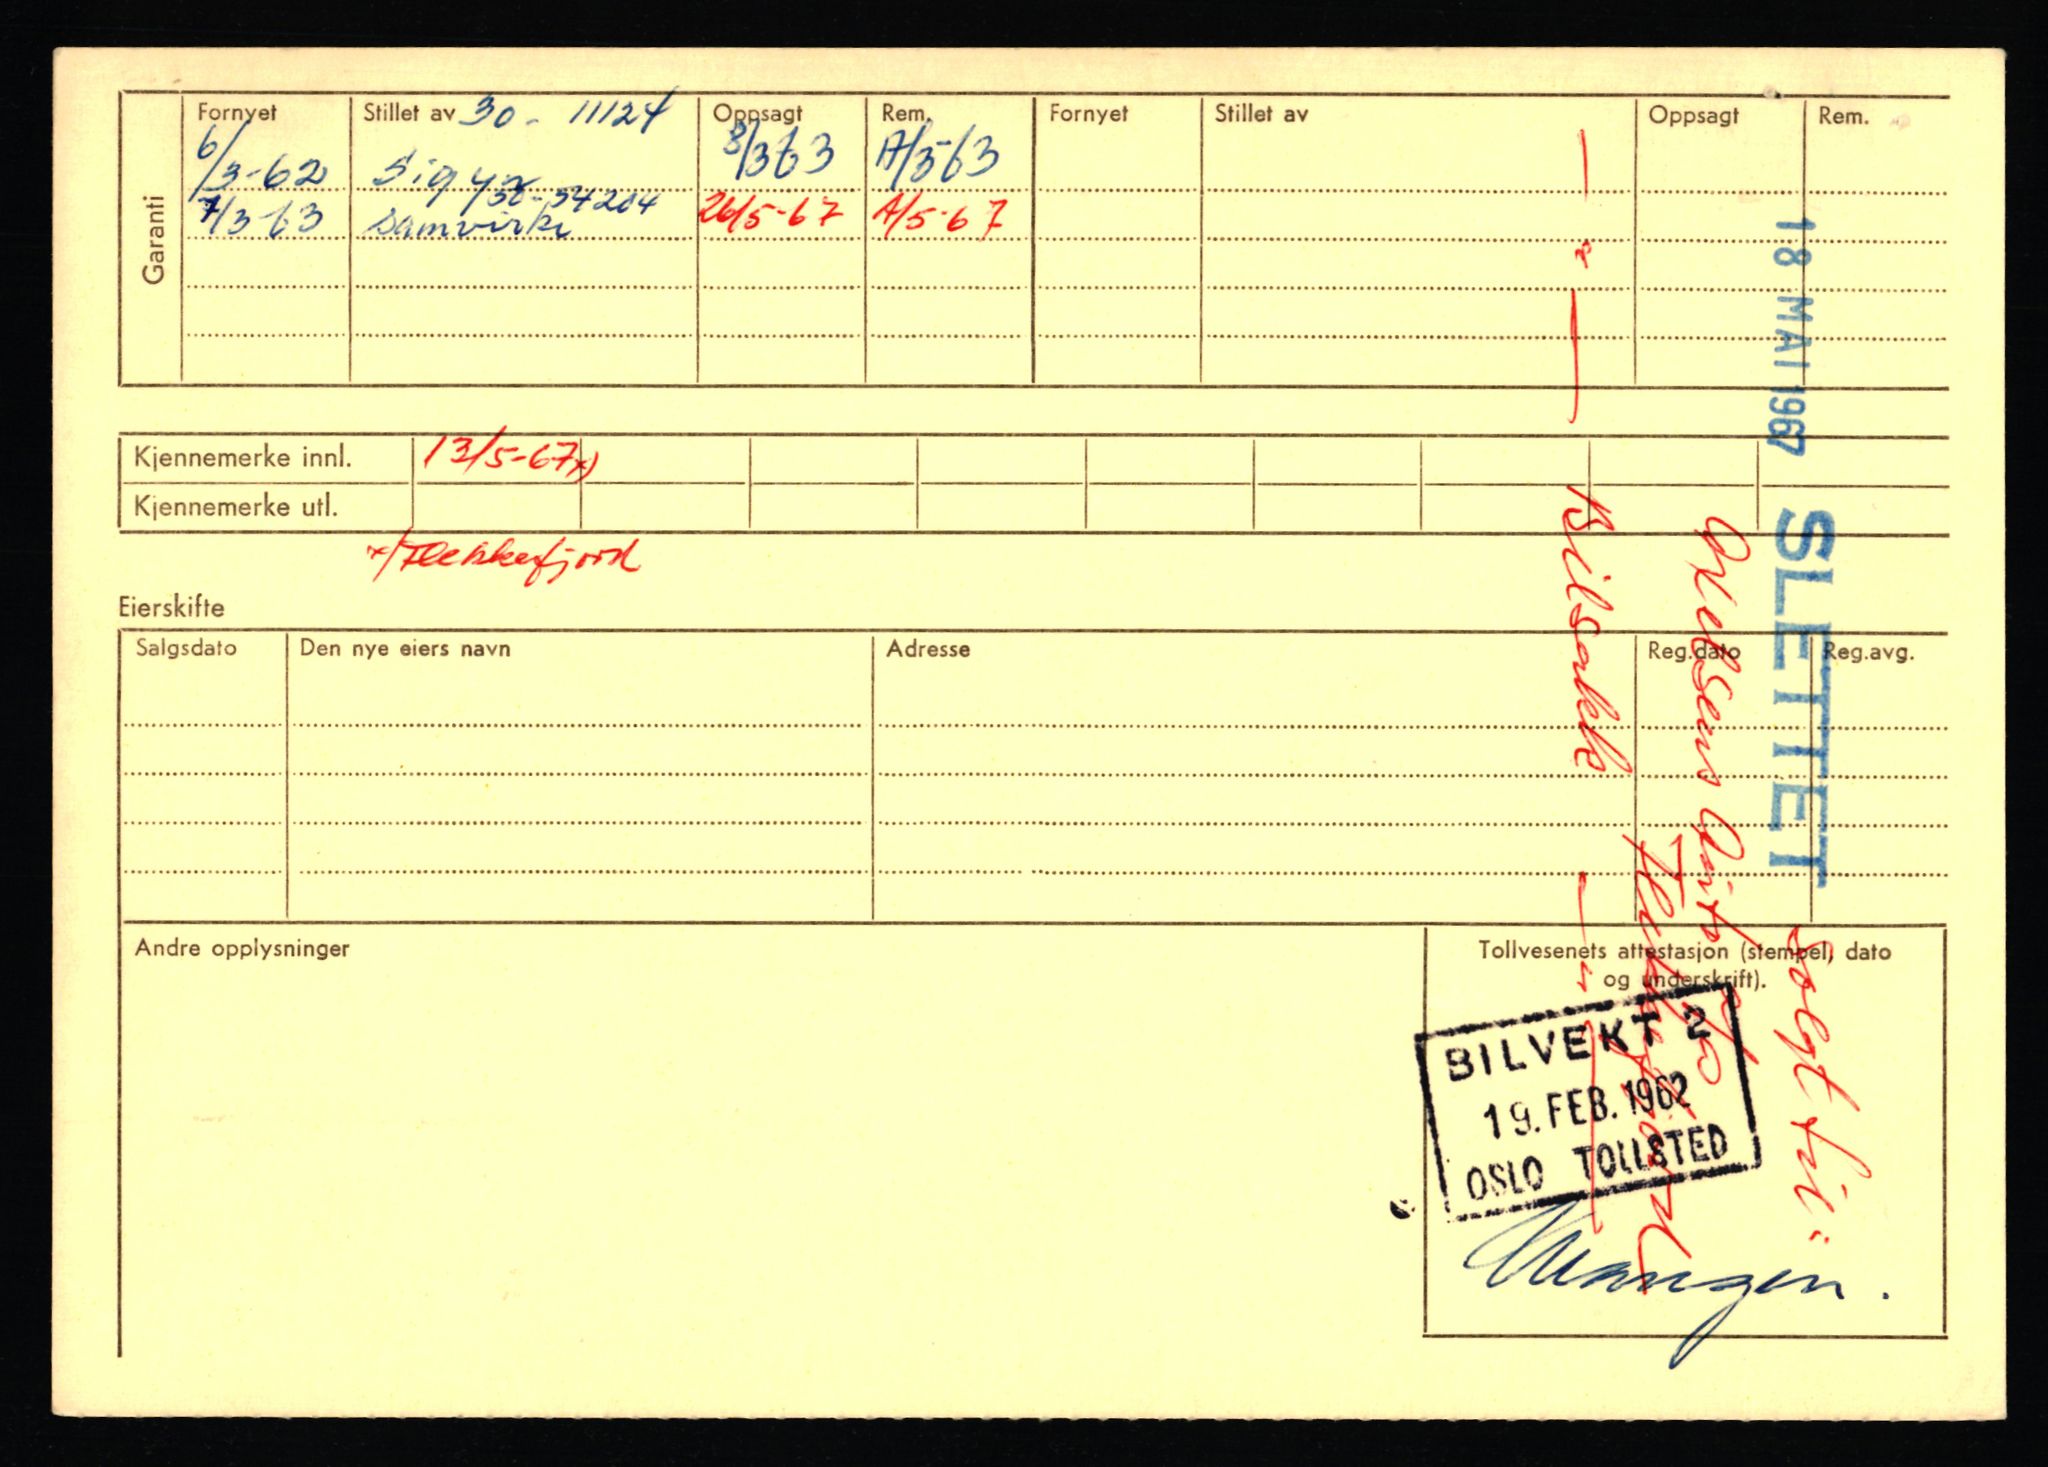 Garanti
Fornyet Stillet av Oppsagt Rem. Fornyet Stillet av Oppsagt Rem.
30 - 11124
6/3-62 Sigyn 8/3 63 A/3-63
30-54204
7/3-63 Samvirke 26/5-67 A/5-67
Kjennemerke innl. 13/5-67 x)
Kjennemerke utl.
x) Flekkefjord
Eierskifte
Salgsdato Den nye eiers navn Adresse Reg.dato Reg.avg.
Andre opplysninger
Tollvesenets attestasjon (stempel, dato
og underskrift).
BILVEKT 2
19. FEB. 1962
OSLO TOLLSTED
18 MAI 1967 SLETTET
Solgt til:
Axelsens Auto
Flekkefjord
— " — Bilsakk — " —